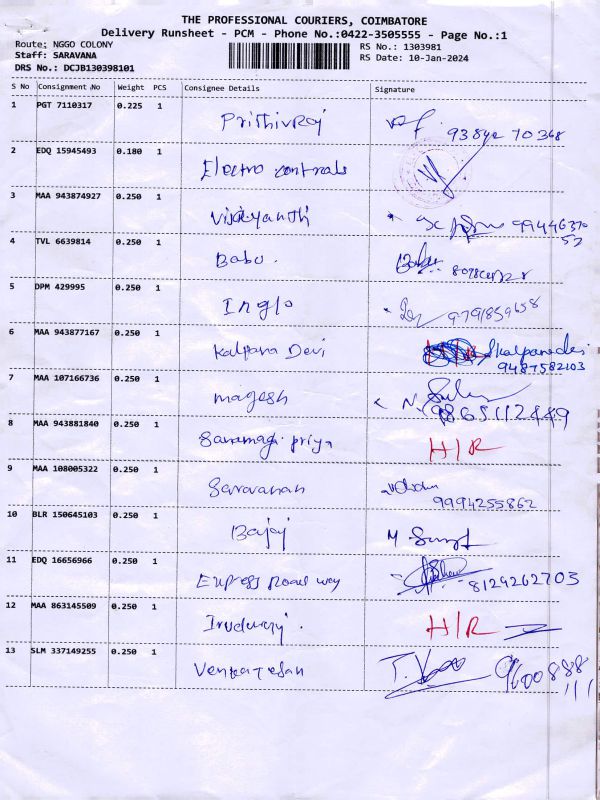 THE PROFESSIONAL COURIERS, COIMBATORE
Delivery Runsheet - PCM - Phone No.:0422-3505555 - Page No.:1
Route: NGGO COLONY
RS No.: 1303981
Staff: SARAVANA
RS Date: 10-Jan-2024
DRS No.: DCJB130398101
S No Consignment No Weight PCS Consignee Details Signature
1 PGT 7110317 0.225 1 Prithivraj
2 EDQ 15945493 0.180 1 Electro controls
3 MAA 943874927 0.250 1 Vijayanthi 99446370
57
4 TVL 6639814 0.250 1 Babu
5 DPM 429995 0.250 1 Inglo 9791859658
6 MAA 943877167 0.250 1 Kalpana Devi Skalpanadevi
9487582103
7 MAA 107166736 0.250 1 magesh
8 MAA 943881840 0.250 1 priya H/R
9 MAA 108005322 0.250 1 Saravanan
9994255862
10 BLR 150645103 0.250 1 Bajaj M
11 EDQ 16656966 0.250 1 Express Road way 8124262703
12 MAA 863145509 0.250 1 H/R
13 SLM 337149255 0.250 1 Venkatesan 9600888
111